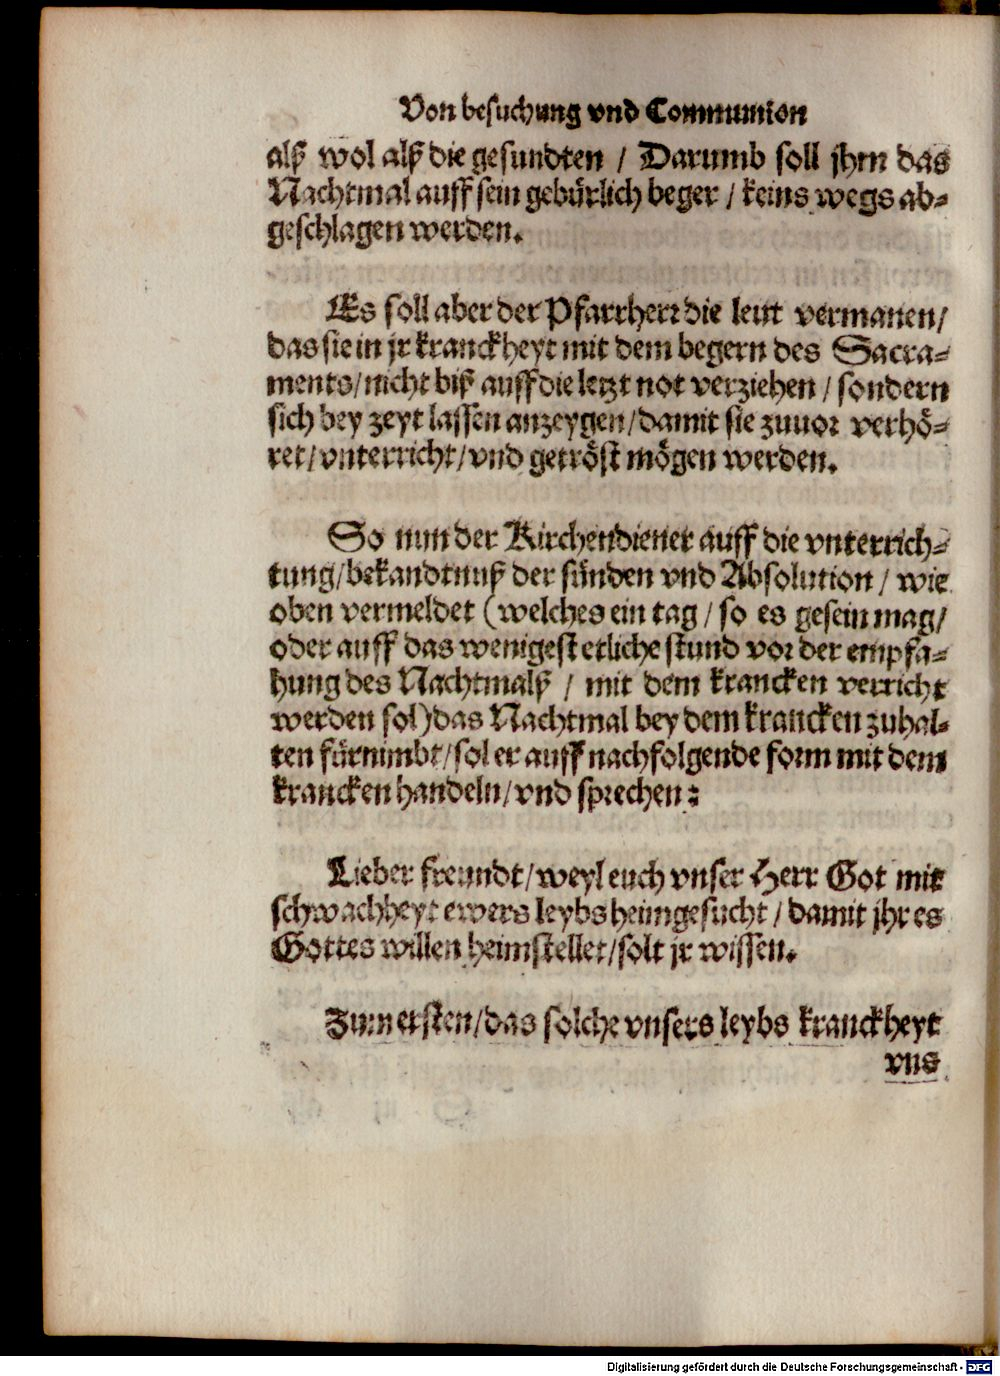 Von besuchung vnd Communion
alß wol alß die gesundten / Darumb soll jhm das
Nachtmal auff sein gebürlich beger / keins wegs ab-
geschlagen werden.
Es soll aber der Pfarrherr die leut vermanen/
das sie in jr kranckheyt mit dem begern des Sacra-
ments/nicht biß auff die letzt not verziehen / sondern
sich bey zeyt lassen anzeygen/damit sie zuuor verhö-
ret/vnterricht/vnd getröst mögen werden.
So nun der Kirchendiener auff die vnterrich-
tung/bekandtnuß der sünden vnd Absolution / wie
oben vermeldet (welches ein tag / so es gesein mag/
oder auff das wenigest etliche stund vor der empfa-
hung des Nachtmalß / mit dem krancken verricht
werden sol)das Nachtmal bey dem krancken zuhal-
ten fürnimbt/sol er auff nachfolgende form mit dem
krancken handeln/vnd sprechen:
Lieber freundt/weyl euch vnser Herr Got mit
schwachheyt ewers leybs heimgesucht / damit jhr es
Gottes willen heimstellet/solt jr wissen.
Zum ersten/das solche vnsers leybs kranckheyt
vns
Digitalisierung gefördert durch die Deutsche Forschungsgemeinschaft - DFG